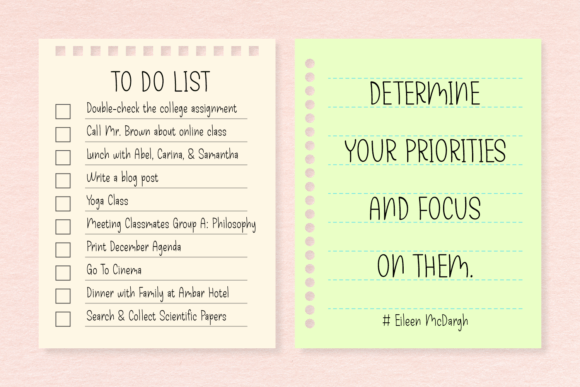 TO DO LIST
Double-check the college assignment
Call Mr. Brown about online class
Lunch with Abel, Carina, & Samantha
Write a blog post
Yoga Class
Meeting Classmates Group A: Philosophy
Print December Agenda
Go To Cinema
Dinner with Family at Ambar Hotel
Search & Collect Scientific Papers
DETERMINE
YOUR PRIORITIES
AND FOCUS
ON THEM.
# Eileen McDargh